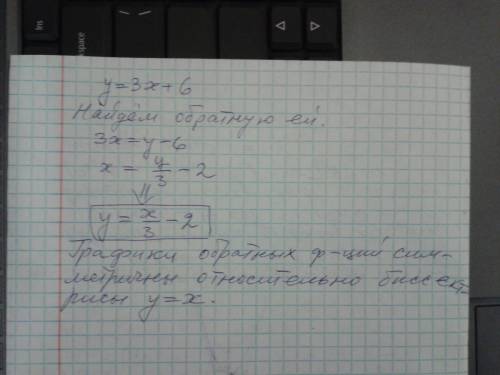 Ins
space
y=3x+6
Найдём обратную ей.
3x=y-6
x = y/3 - 2
⇓
y = x/3 - 2
Графики обратных ф-ций сим-
метричны относительно биссект-
рисы y=x.